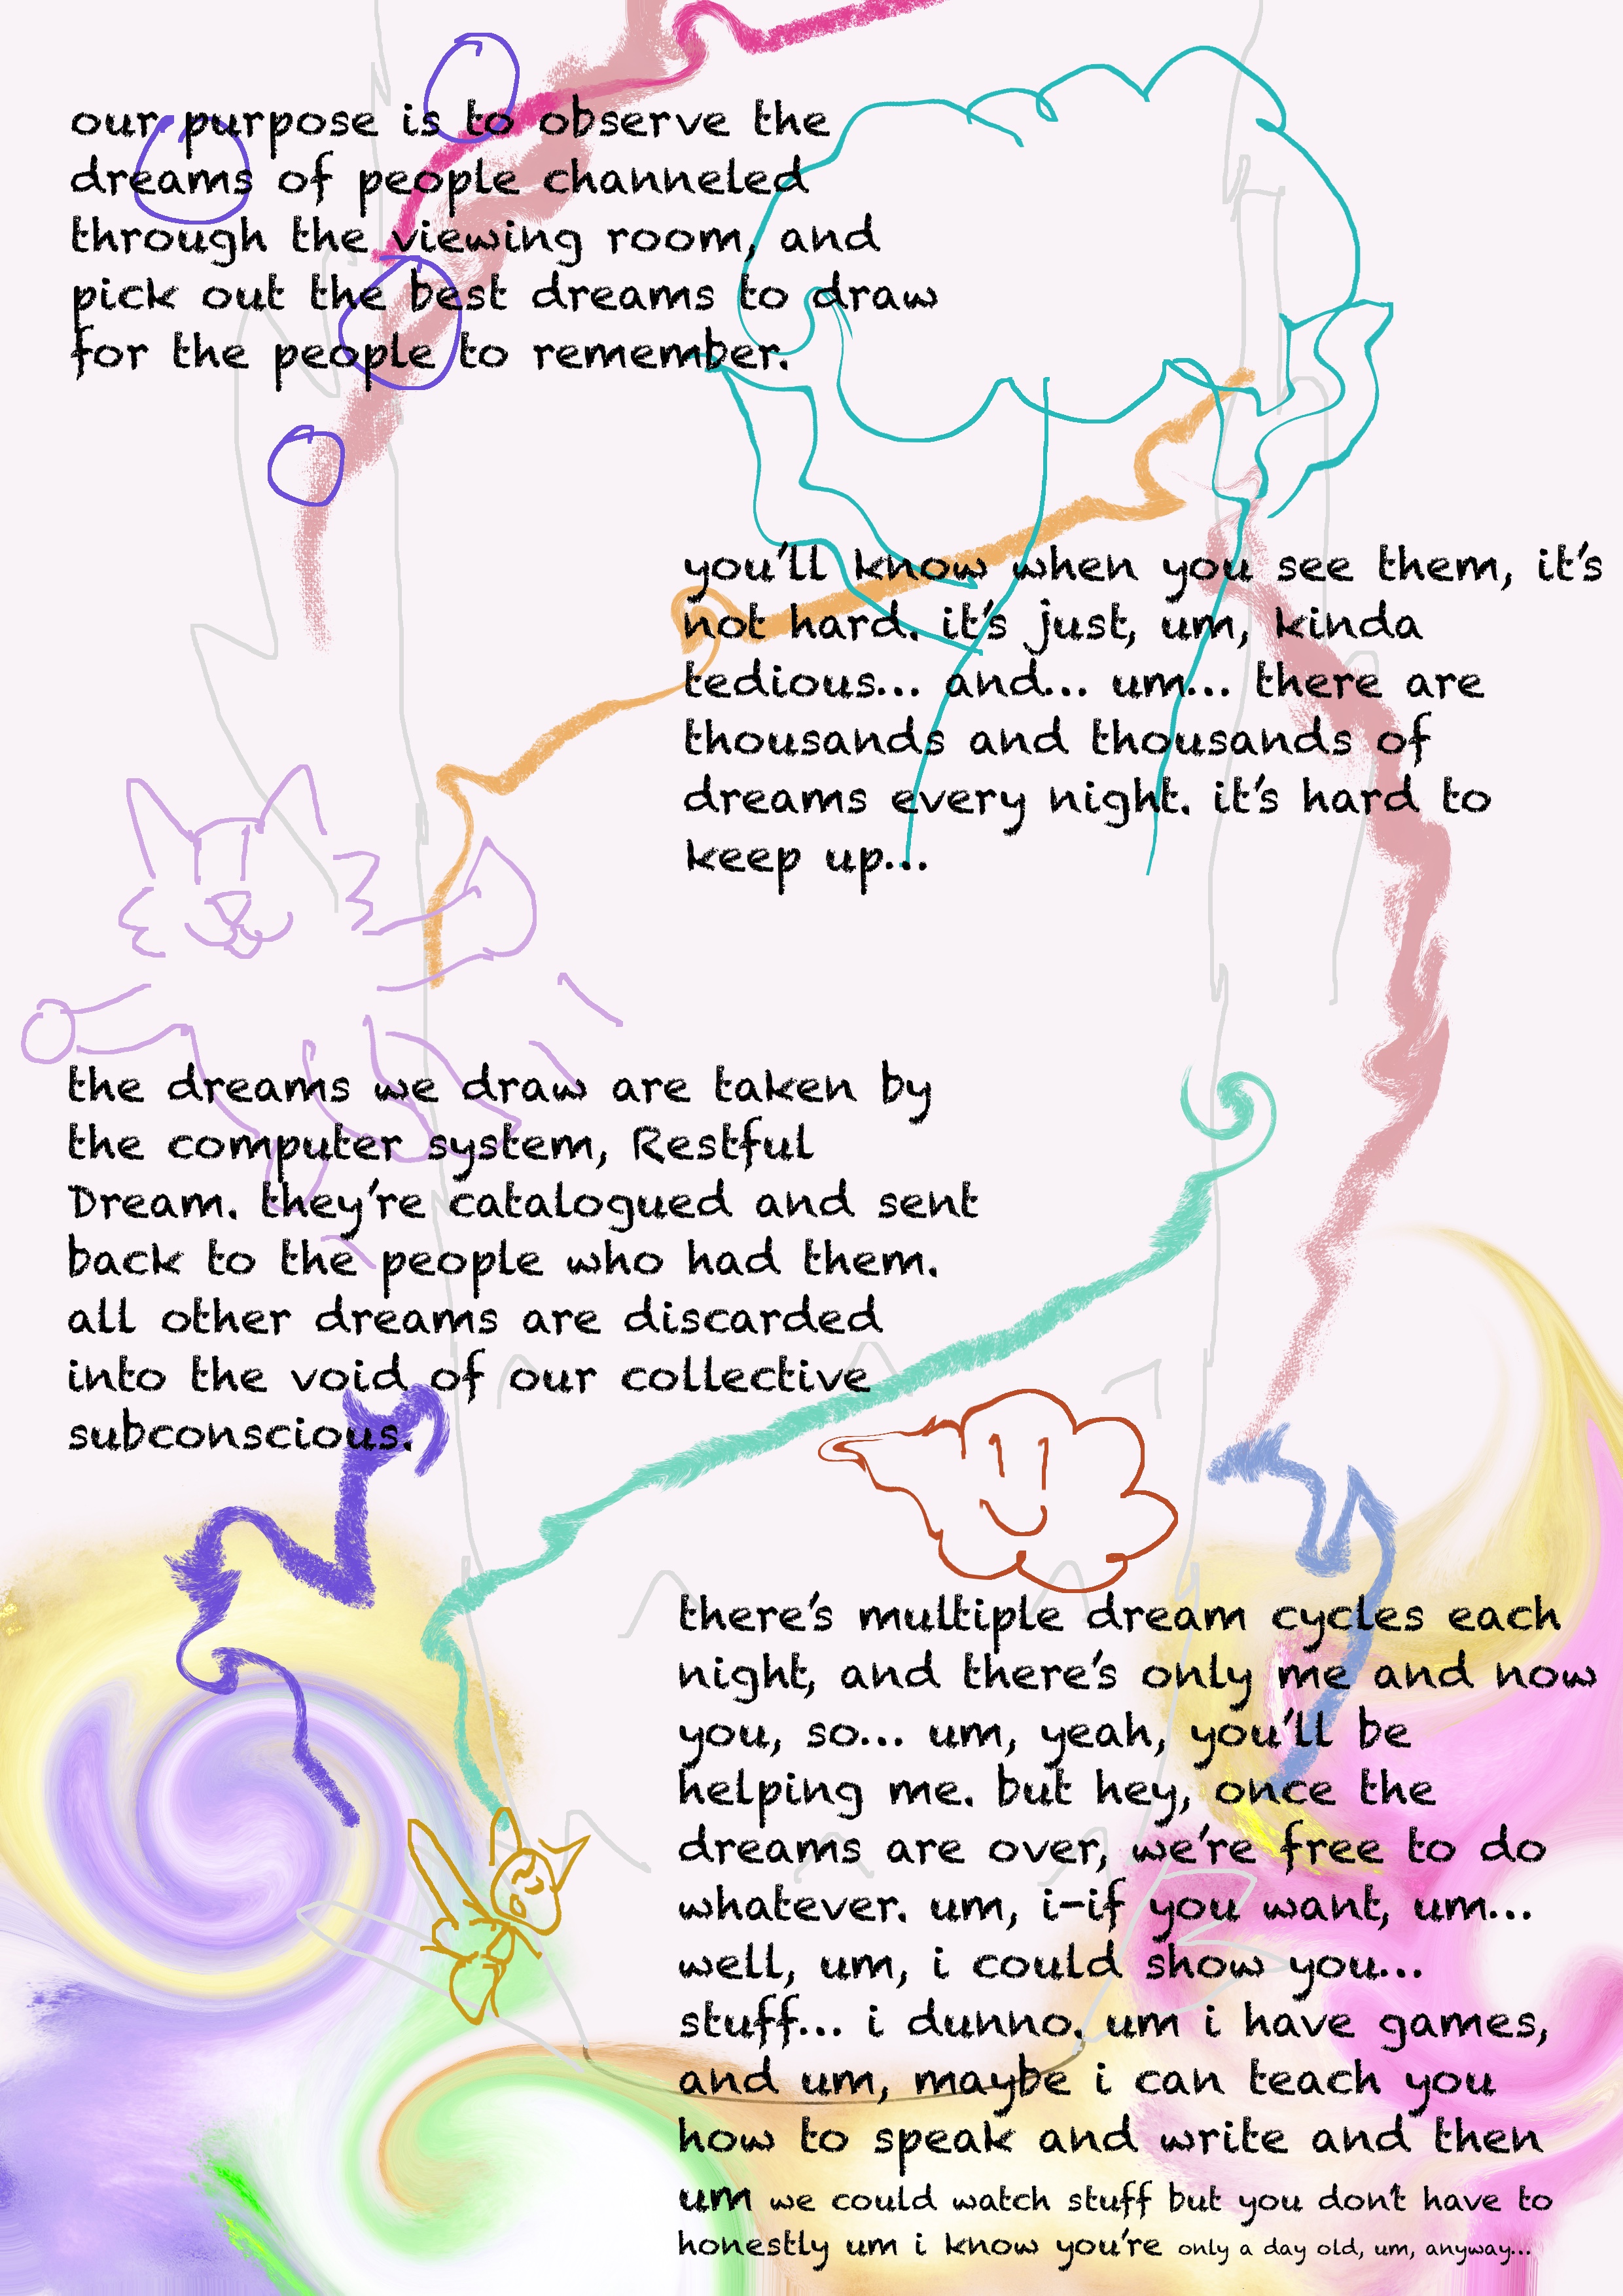 our purpose is to observe the
dreams of people channeled
through the viewing room, and
pick out the best dreams to draw
for the people to remember.
you'll know when you see them, it's
not hard. it's just, um, kinda
tedious... and... um... there are
thousands and thousands of
dreams every night. it's hard to
keep up...
the dreams we draw are taken by
the computer system, Restful
Dream. they're catalogued and sent
back to the people who had them.
all other dreams are discarded
into the void of our collective
subconscious.
there's multiple dream cycles each
night, and there's only me and now
you, so... um, yeah, you'll be
helping me. but hey, once the
dreams are over, we're free to do
whatever. um, i-if you want, um...
well, um, i could show you...
stuff... i dunno. um i have games,
and um, maybe i can teach you
how to speak and write and then
um we could watch stuff but you don't have to
honestly um i know you're only a day old, um, anyway...